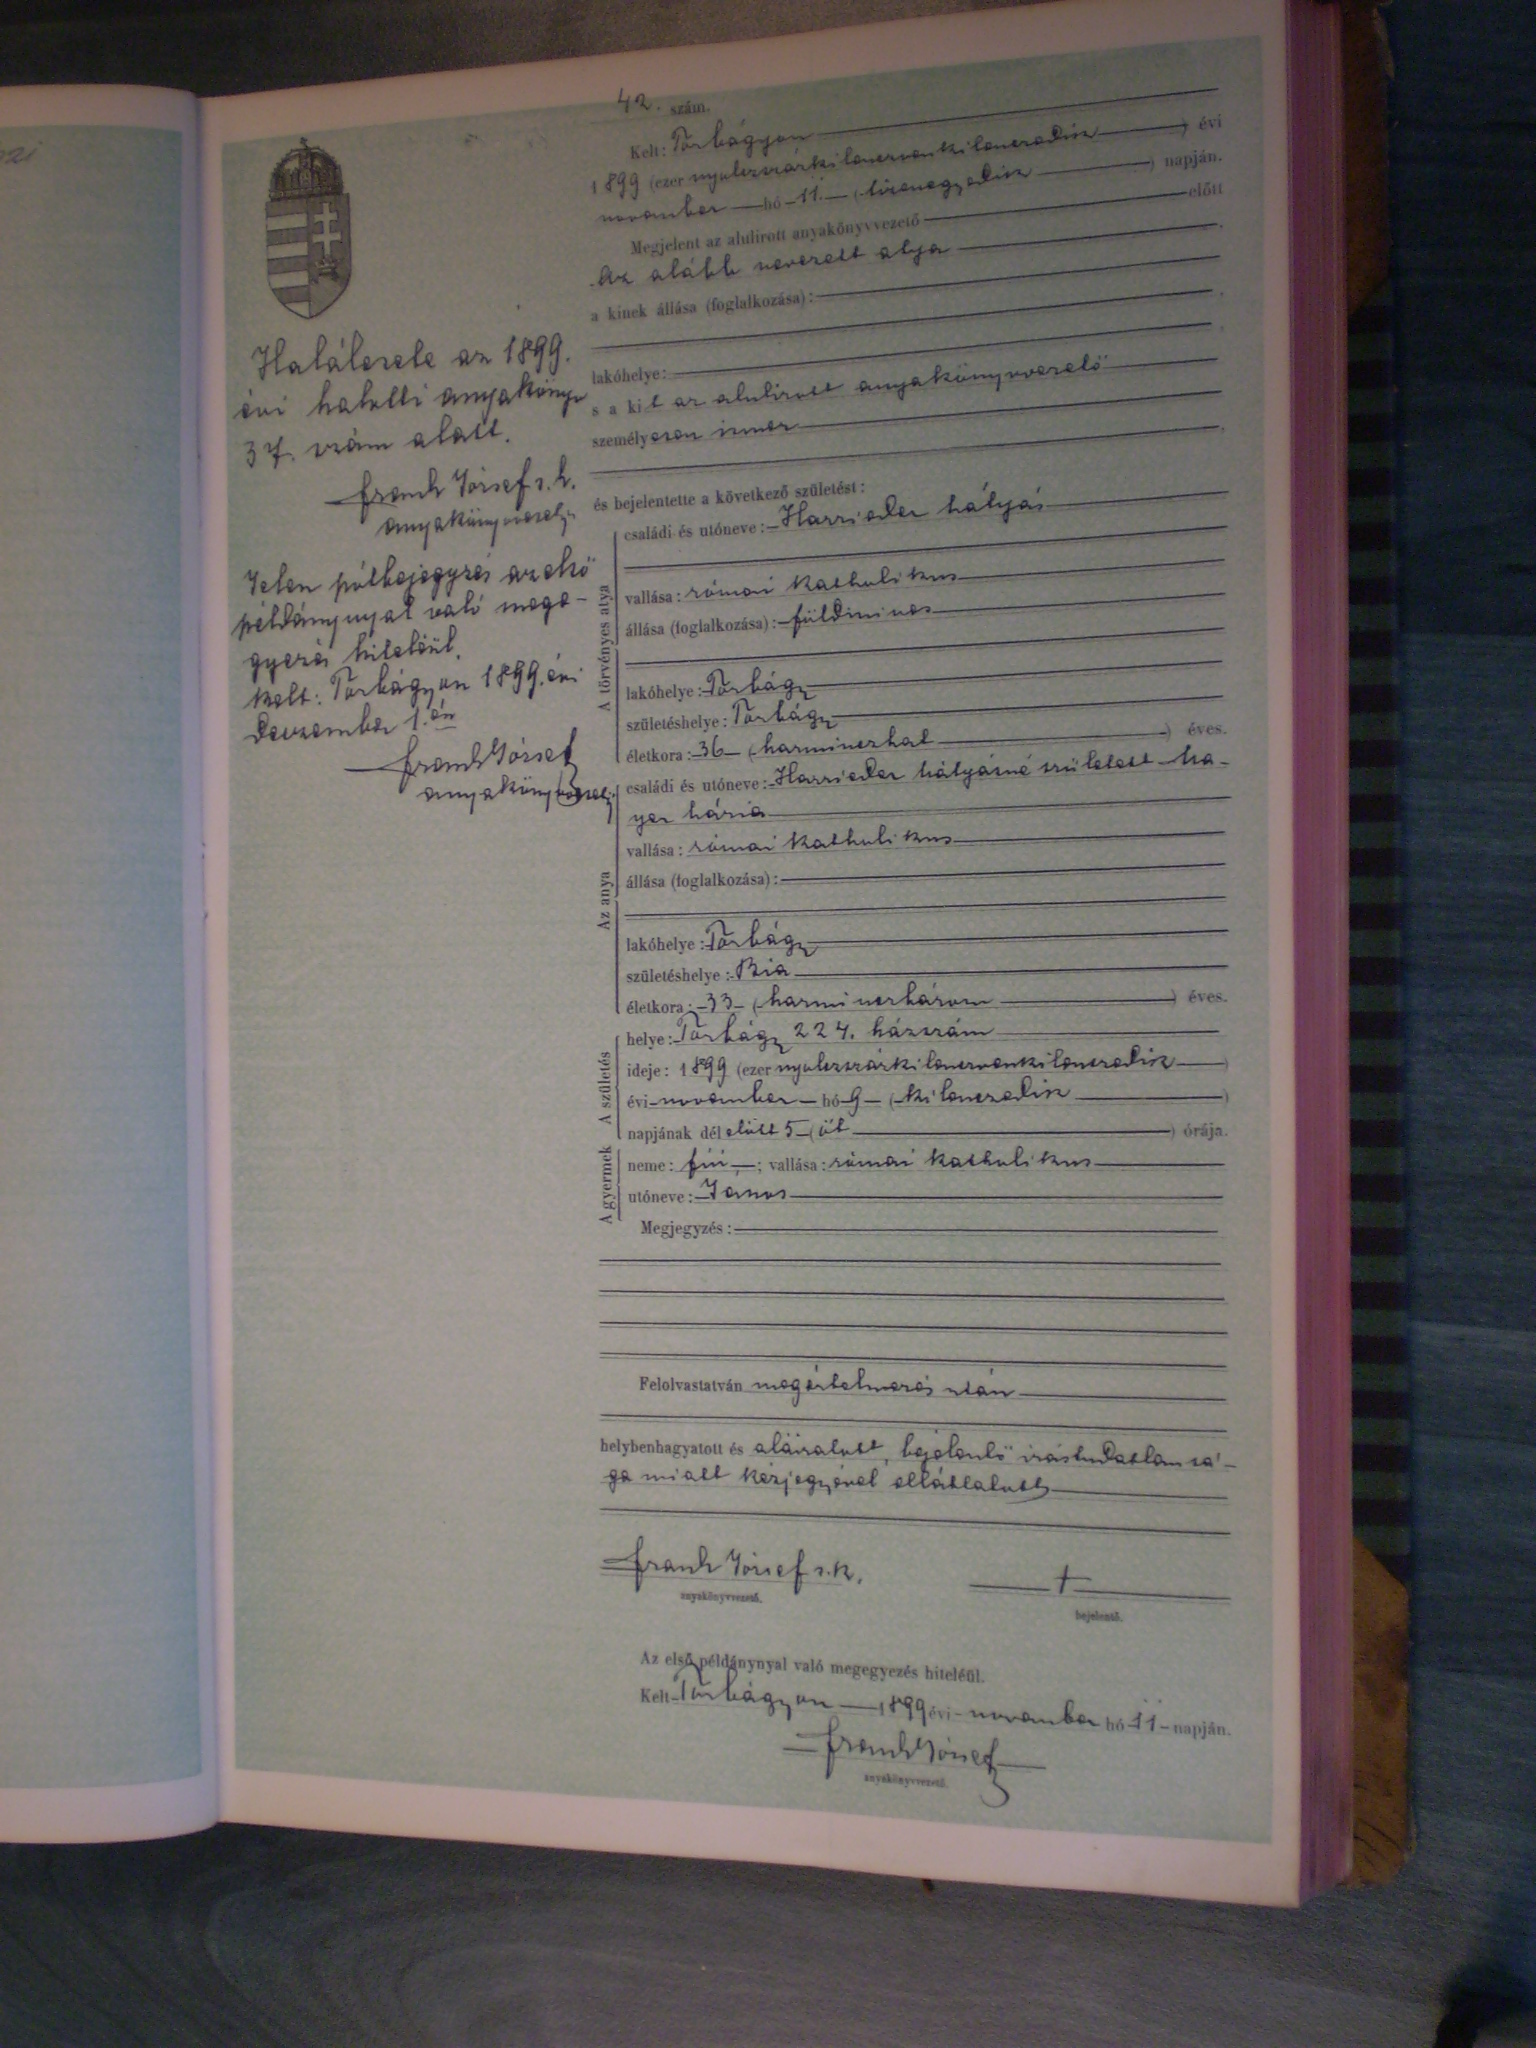 42. szám.
Kelt: Törbágyon
1899 (ezer nyolczszázkilenczvenkilenczedik) évi
november hó 11. (tizenegyedik) napján.
Megjelent az alulirott anyakönyvvezető előtt
az alább nevezett atya
a kinek állása (foglalkozása):
lakóhelye:
s a kit az alulirott anyakönyvvezető
személyesen ismer
és bejelentette a következő születést:
A törvényes atya
családi és utóneve: Harrieder Mátyás
vallása: római katholikus
állása (foglalkozása): földmives
lakóhelye: Törbágy
születéshelye: Törbágy
életkora: 36 (harminczhat) éves.
Az anya
családi és utóneve: Harrieder Mátyásné született Ma-
yer Mária
vallása: római katholikus
állása (foglalkozása):
lakóhelye: Törbágy
születéshelye: Bia
életkora: 33 (harminczhárom) éves.
A születés
helye: Törbágy 224. házszám
ideje: 1899 (ezer nyolczszázkilenczvenkilenczedik)
évi november hó 9 (kilenczedik)
napjának dél előtt 5 (öt) órája.
A gyermek
neme: fiú; vallása: római katholikus
utóneve: János
Megjegyzés:
Felolvastatván megértelmezés után
helybenhagyatott és aláiratott, bejelentő irástudatlansá-
ga miatt kézjegyével elláttatott
Frank József s.k.
anyakönyvvezető.
+
bejelentő.
Az első példánynyal való megegyezés hiteléül.
Kelt Törbágyon 1899 évi november hó 11 napján.
Frank József
anyakönyvvezető.
Halálesete az 1899.
évi halotti anyakönyv
37. szám alatt.
Frank József s.k.
anyakönyvvezető
Jelen pótbejegyzés az első
példánynyal való mege-
gyezés hiteléül.
Kelt: Törbágyon 1899. évi
deczember 1.én
Frank József
anyakönyvvezető